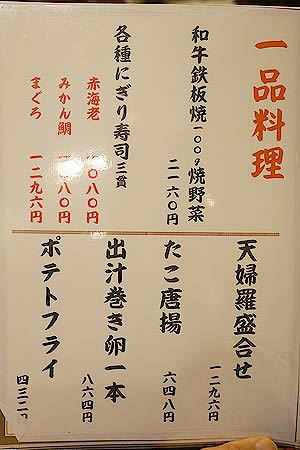 一品料理
和牛鉄板焼一〇〇g焼野菜
二一六〇円
各種にぎり寿司三貫
赤海老 一〇八〇円
みかん鯛 一〇八〇円
まぐろ 一二九六円
天婦羅盛合せ
一二九六円
たこ唐揚
六四八円
出汁巻き卵一本
八六四円
ポテトフライ
四三二